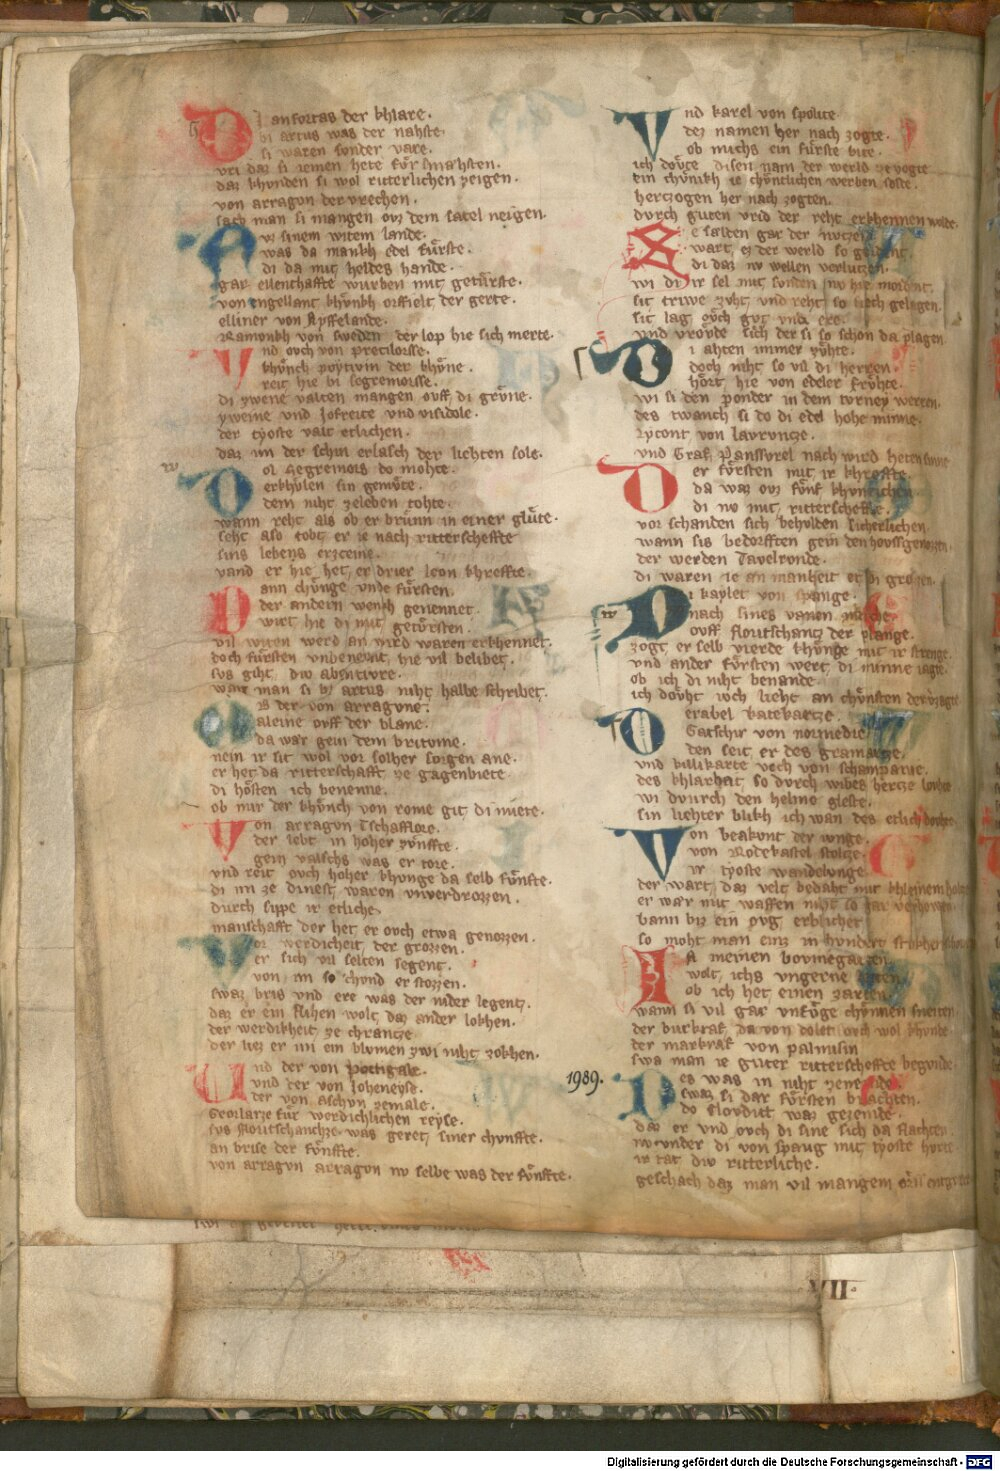 D anfortas der khlare.
bi artus was der nahste.
si waren sonder vare.
vri daz si iemen hete für smahsten.
daz khvnden si wol ritterlichen zeigen.
von arragvn der vrechen.
sach man si mangen ovz dem satel neigen.
vz sinem witem lande.
was da manikh edel fürste.
di da mit heldes hande.
gar ellenthaffte wurben mit getürste.
von engellant khvnikh orffielt der gerte.
elliner von Apffelande.
Ramonkh von sweden der lop hie sich merte.
Vnd ovch von precilorsse.
khönch poytivin der khöne.
reit hie bi segremorsse.
di ywene valten mangen ovff di gröne.
yweine vnd Jofreite vnd visidole.
der tyoste valt etlichen.
daz im der schin erlasch der liechten sole.
Wol Segremors do mohte.
erkhülen sin gemöte.
dem niht zeleben tohte.
wann reht als ob er brünn in einer glüte.
seht also tobt er ie nach ritterscheffte
sins lebens erzceine.
vand er hie het er drier leon khreffte.
Dann chönge vnde fürsten.
der andern wenkh genennet.
wirt hie di mit getörsten.
vil wiren werd an wird waren erkhennet.
doch fürsten vnbenennt hie vil belibet.
svs giht div abentivre.
wan man si bi artus niht halbe schribet.
Ob der von arragvne.
aleine ovff der plane.
da war gein dem britvine.
nein ir sit wol vor solher sorgen ane.
er het da ritterschafft ze gagenbiete
di hösten ich benenne.
ob mir der khönch von rome git di miete.
Von arragvn Tschafflore.
der lebt in hoher zvnffte.
gein valschs was er tore.
vnd reit ovch hoher khvnge da selb fünfte.
di im ze dinest waren vnverdrozzen.
durch sippe ir etliche.
manschafft der het er ovch etwa genozzen.
Vor werdicheit der grozzen.
er sich vil selten segent.
von im so chvnd er stozzen.
swaz bris vnd ere was der nider legent.
daz er ein flihen wolt daz ander lokhen.
der werdikheit ze chrantze
der liez er im ein blvmen zwi niht zokhen.
Vnd der von portigale.
vnd der von loheneyse.
der von aschvn zemale.
Seoilarze für werdichlichen reyse.
svs floritschanchze was geret siner chvnffte.
an brise der fünffte.
von arragvn arragvn nv selbe was der fünffte.
Vnd karel von spolite
dez namen her nach zogte.
ob michs ein fürste bite.
ich dovte disen nam der werld ze vogte
ein chvnikh ie chöntlichen werben solte.
hertzogen her nach zogten.
dvrch gvten vrid der reht erkhennen wolde.
Se salden gar der nvtzen
wart ez der werld so geident
di daz nv wellen verlvtzen.
wi di ir sel mit sonden nv hie mordent
sit triwe zvht vnd reht so siech gelegen.
sit lag ovch gvt vnd ere.
vnd vrovde sich der si so schon da plagen
Di ahten immer zühte.
doch niht so vil di herren.
hört hie von edeler frühte.
wi si den ponder in dem tvrney werren.
des twanch si do di edel hohe minne.
Lycont von lavrvncze.
vnd Graf Panssvrel nach wird heten sinne
Der försten mit ir khreffte
da waz ovz fünf khvnrichen
di nv mit ritterscheffte.
vor schanden sich behvlden sicherlichen.
wann sis bedorfften gein den hovsgenozzen.
der werden Tavelrvnde.
di waren ie an manheit er di grozen.
Di kaylet von spange.
nach sines vanen melche
ovff floritschantz der plange.
zogt er selb vierde khünge mit ir strenge.
vnd ander försten wert di minne iagte.
ob ich di niht benande.
ich dovht ioch lieht an chönsten der vzagte
Derabel katekartze.
Gatschir von normedie
den seit er des gramartze.
vnd billikarte vech von schampanie.
des khlarheit so dvrch wibes hertze lvhte
wi dvnrch den helme gleste.
sin liehter blikh ich wan des etlich dovhte.
Von beakvnt der ivnge.
von Rodekastel stoltze.
ir tyoste wandelvnge
der wart daz velt bedaht mit khleinem holtze
er war mit waffen niht so gar verhowen.
dann biz ein ovg erblichet
so moht man einz in hvndert stvkhen schowen
In meinen bovmegarten.
wolt ichs vngerne iten.
ob ich het einen zarten
wann si vil gar vnföge chönnen sneiten.
der bvrkraf da von dolet ovch wol khvnde.
der markraf von palmisin
swa man ie gvter ritterscheffte begvnde.
Des was in niht zem
swaz si dar försten brachten.
do flordict waz gezende.
daz er vnd ovch di sine sich da flachten
nv vnder di von spang mit tyoste hvrte
ir tat div ritterliche.
geschach daz man vil mangem
1989.
VII.
Digitalisierung gefördert durch die Deutsche Forschungsgemeinschaft - DFG